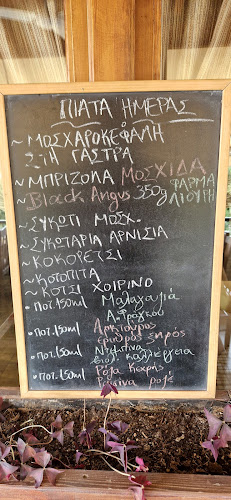 ΠΙΑΤΑ ΗΜΕΡΑΣ
~ ΜΟΣΧΑΡΟΚΕΦΑΛΗ
ΣΤΗ ΓΑΣΤΡΑ
~ ΜΠΡΙΖΟΛΑ ΜΟΣΧΙΔΑ
~ Black Angus 350g ΦΑΡΜΑ
ΛΙΟΥΡΗ
~ ΣΥΚΩΤΙ ΜΟΣΧ.
~ ΣΥΚΩΤΑΡΙΑ ΑΡΝΙΣΙΑ
~ ΚΟΚΟΡΕΤΣΙ
~ ΚΟΤΟΠΙΤΑ
~ ΚΟΤΣΙ ΧΟΙΡΙΝΟ
• ΠΟΤ. 150ml Μαλαγουζιά
Α. Φράγκου
• ΠΟΤ. 150ml Αρκτούρος
ερυθρός ξηρός
• ΠΟΤ. 150ml Ντεμπίνα
βιολ. καλλιέργεια
• ΠΟΤ. 150ml Ρόζα Κεχρής
Ρετσίνα ροζέ